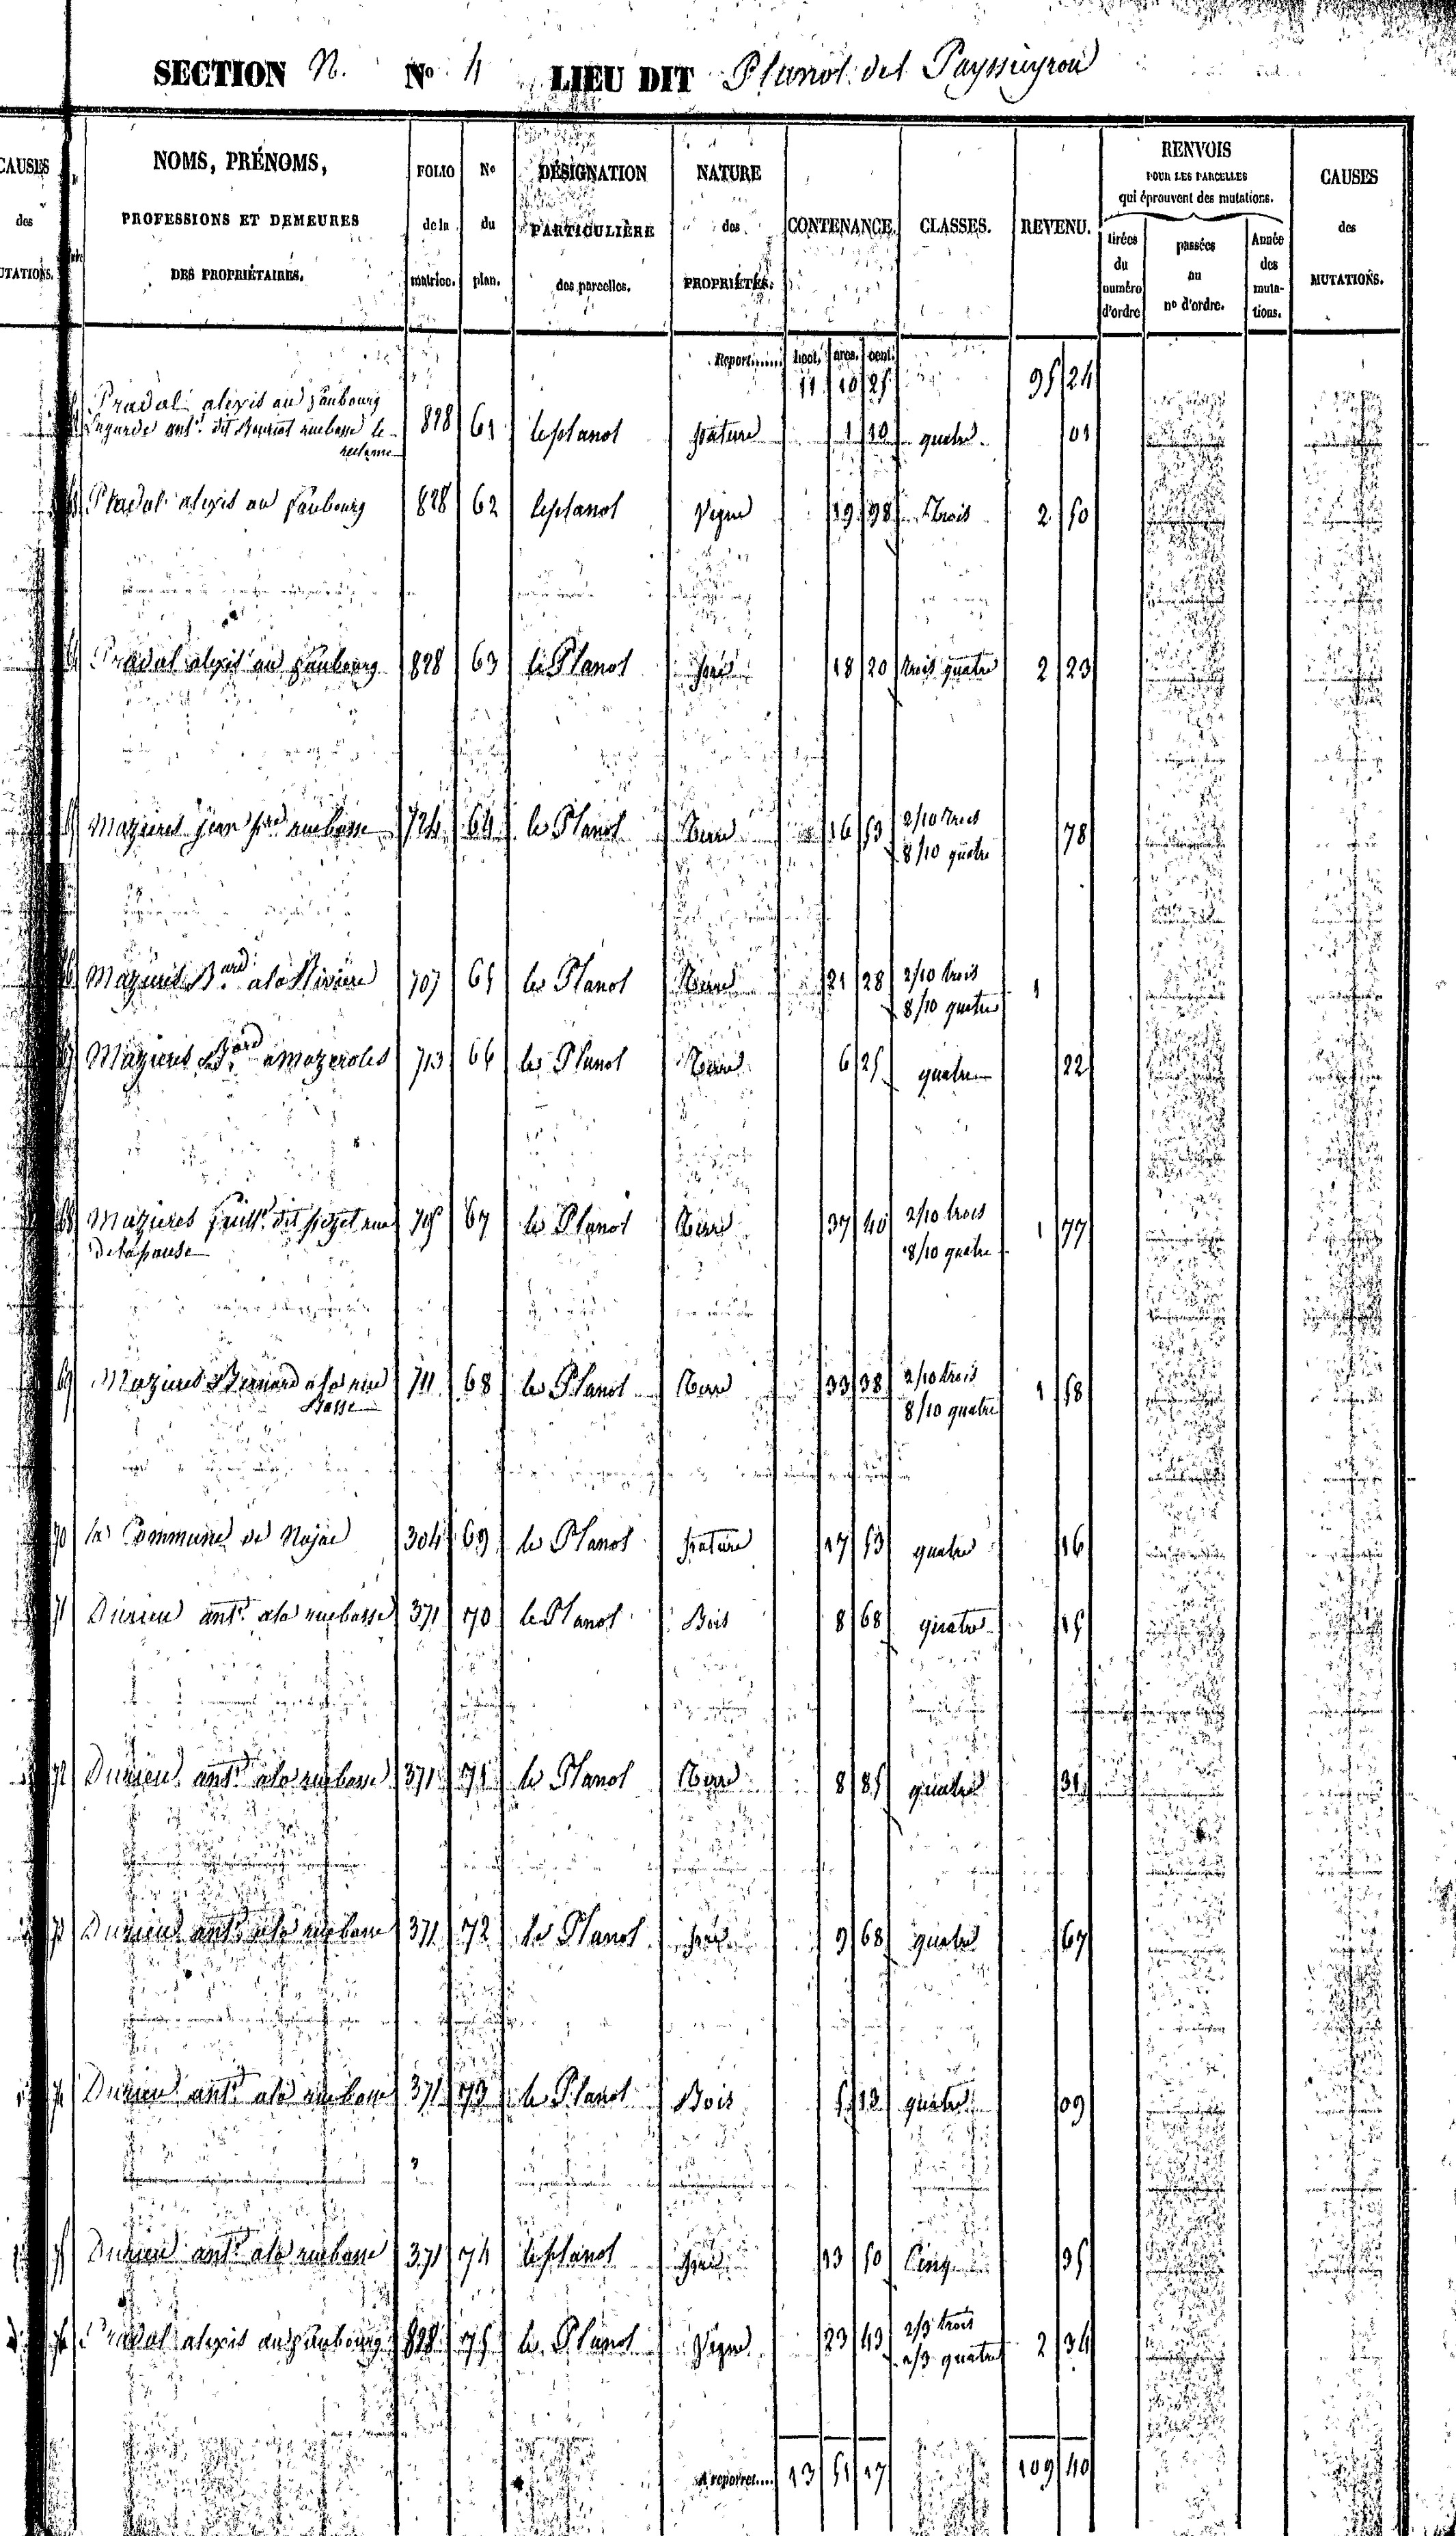 SECTION N. No 4 LIEU DIT Planol del Puysseyrou
CAUSES des MUTATIONS.
NOMS, PRÉNOMS, PROFESSIONS ET DEMEURES DES PROPRIÉTAIRES.
FOLIO de la matrice.
No du plan.
DÉSIGNATION PARTICULIÈRE des parcelles.
NATURE des PROPRIÉTÉS.
CONTENANCE.
CLASSES.
REVENU.
RENVOIS POUR LES PARCELLES qui éprouvent des mutations.
tirées du numéro d'ordre
passées au no d'ordre.
Année des mutations.
CAUSES des MUTATIONS.
Report...... hect. ares. cent.
11 10 25 95 24
Pradal alexis au faubourg
Lagarde ant. dit rue basse le 828 61 le planol pature 1 10 quatre 01
reclame
Pradal alexis au faubourg 828 62 le planol Vigne 19 98 trois 2 50
64 Pradal alexis au faubourg 828 63 le Planol pré 18 20 trois quatre 2 23
65 Mazieres jean pre rue basse 724 64 le Planol Terre 16 53 2/10 trois
8/10 quatre 78
66 Mazieres B.ard a la Riviere 707 65 le Planol Terre 21 28 2/10 trois
8/10 quatre 1
67 Mazieres B.ard a mazeroles 713 66 le Planol Terre 6 25 quatre 22
68 Mazieres dit rue 67 le Planol Terre 37 40 2/10 trois
de la pause 8/10 quatre 1 77
69 Mazieres Bernard a la rue 711 68 le Planol Terre 33 38 2/10 trois
Basse 8/10 quatre 1 58
70 la Commune de Najac 304 69 le Planol pature 17 53 quatre 16
71 Durieu ant. a la rue basse 371 70 le Planol Bois 8 68 quatre 15
72 Durieu ant. a la rue basse 371 71 le Planol Terre 8 85 quatre 31
73 Durieu ant. a la rue basse 371 72 le Planol pré 9 68 quatre 67
74 Durieu ant. a la rue basse 371 73 le Planol Bois 5 13 quatre 09
75 Durieu ant. a la rue basse 371 74 le planol pré 13 50 Cinq 35
76 Pradal alexis au faubourg 828 75 le Planol Vigne 23 43 2/3 trois
1/3 quatre 2 34
A reporter.... 13 51 17 109 40